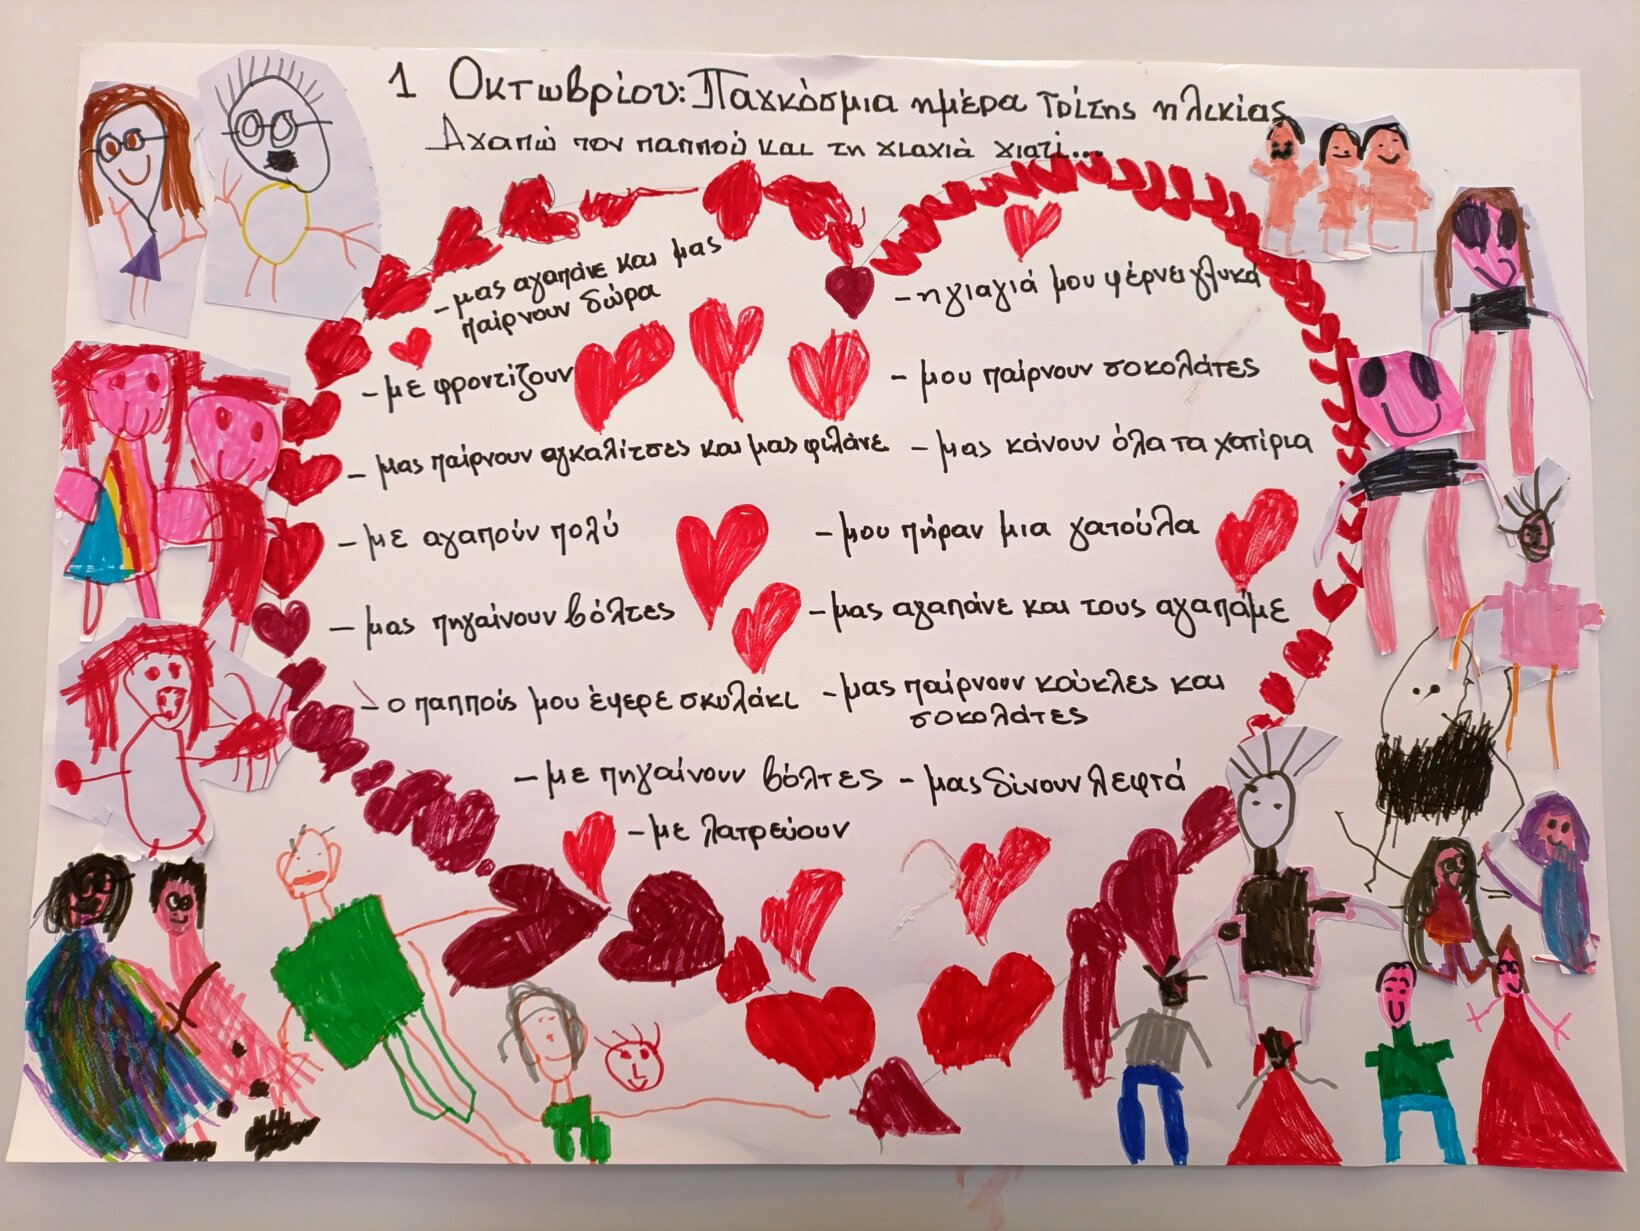 1 Οκτωβρίου: Παγκόσμια ημέρα Τρίτης ηλικίας
Αγαπώ τον παππού και τη γιαγιά γιατί...
- μας αγαπάνε και μας
παίρνουν δώρα
- με φροντίζουν
- μας παίρνουν αγκαλίτσες και μας φιλάνε
- με αγαπούν πολύ
- μας πηγαίνουν βόλτες
- ο παππούς μου έφερε σκυλάκι
- με πηγαίνουν βόλτες
- με λατρεύουν
- η γιαγιά μου φέρνει γλυκά
- μου παίρνουν σοκολάτες
- μας κάνουν όλα τα χατίρια
- μου πήραν μια γατούλα
- μας αγαπάνε και τους αγαπάμε
- μας παίρνουν κούκλες και
σοκολάτες
- μας δίνουν λεφτά